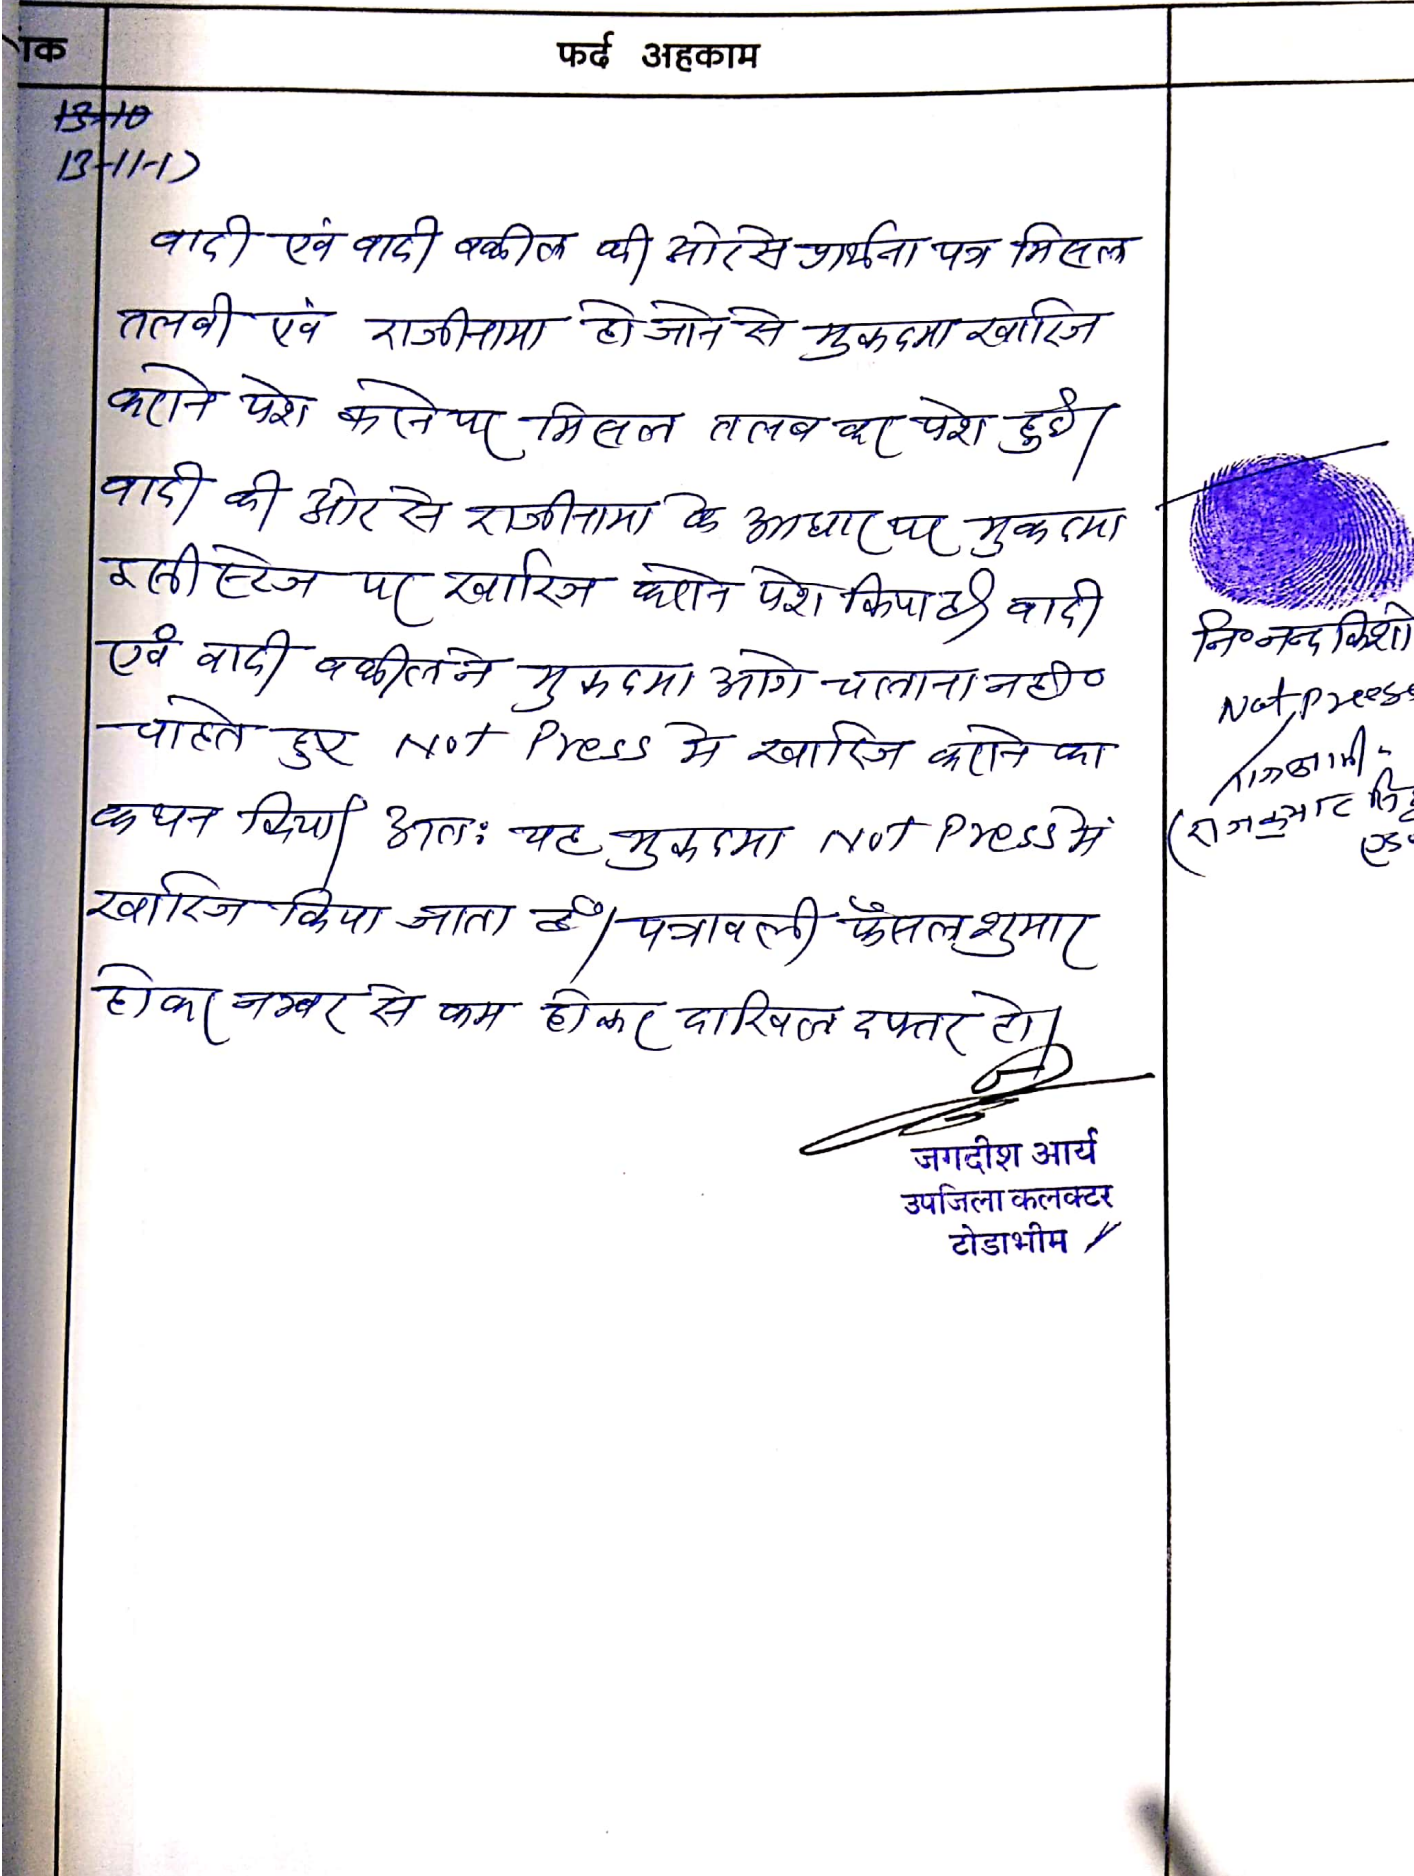 ांक
फर्द अहकाम
13-10
13-11-17
वादी एवं वादी वकील की ओर से प्रार्थना पत्र मिसल
तलबी एवं राजीनामा हो जाने से मुकदमा खारिज
कराने पेश करने पर मिसल तलब कर पेश हुई।
वादी की ओर से राजीनामा के आधार पर मुकदमा
इसी स्टेज पर खारिज कराने पेश किया है। वादी
एवं वादी वकील ने मुकदमा आगे चलाना नहीं
चाहते हुए Not Press मे खारिज कराने का
कथन किया। अतः यह मुकदमा Not Press में
खारिज किया जाता है। पत्रावली फैसल शुमार
होकर नम्बर से कम होकर दाखिल दफ्तर हो।
नि० नन्द किशो
Not Preess
(राजकुमार सिंह
एड
जगदीश आर्य
उपजिला कलक्टर
टोडाभीम